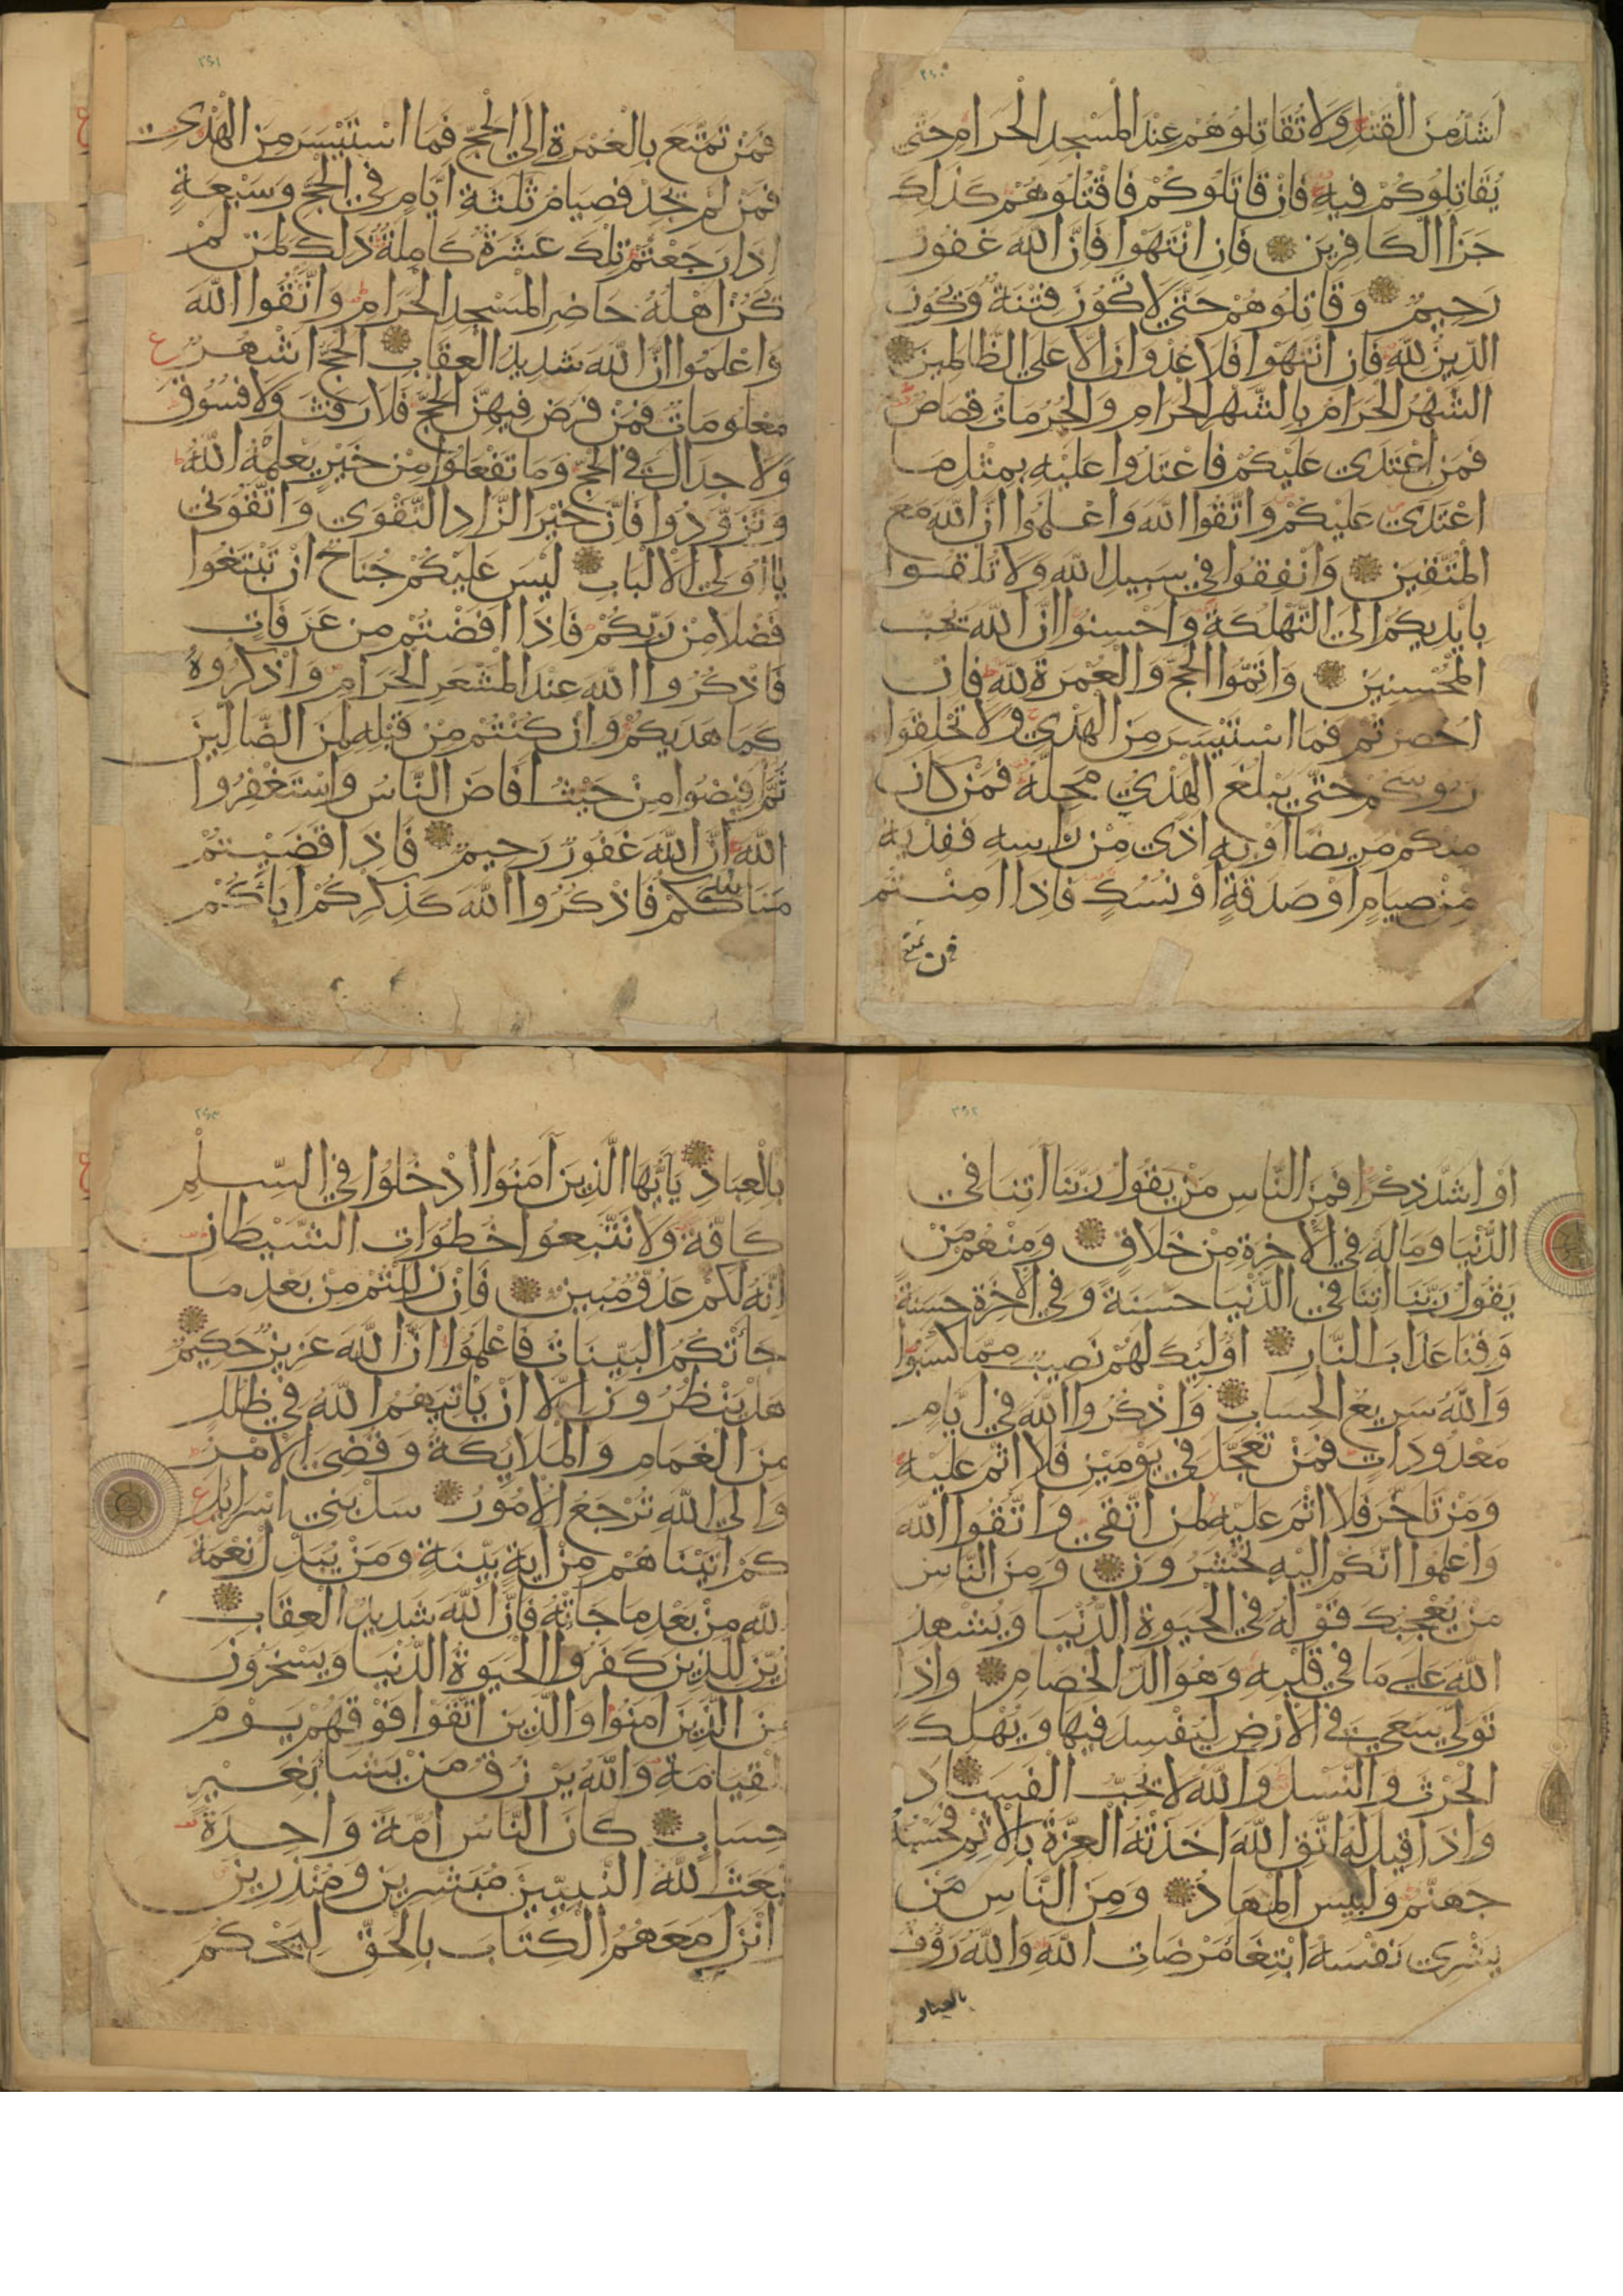 ٢٤٠
اَشَدُّ مِنَ الْقَتْلِ وَلَا تُقَاتِلُوهُمْ عِنْدَ الْمَسْجِدِ الْحَرَامِ حَتّٰي
يُقَاتِلُوكُمْ فِيهِ فَاِنْ قَاتَلُوكُمْ فَاقْتُلُوهُمْ كَذٰلِكَ
جَزَا الْكَافِرِينَ فَاِنِ انْتَهَوْا فَاِنَّ اللّٰهَ غَفُورٌ
رَحِيمٌ وَقَاتِلُوهُمْ حَتّٰي لَا تَكُونَ فِتْنَةٌ وَيَكُونَ
الدِّينُ لِلّٰهِ فَاِنِ انْتَهَوْا فَلَا عُدْوَانَ اِلَّا عَلَي الظَّالِمِينَ
الشَّهْرُ الْحَرَامُ بِالشَّهْرِ الْحَرَامِ وَالْحُرُمَاتُ قِصَاصٌ
فَمَنِ اعْتَدَي عَلَيْكُمْ فَاعْتَدُوا عَلَيْهِ بِمِثْلِ مَا
اعْتَدَي عَلَيْكُمْ وَاتَّقُوا اللّٰهَ وَاعْلَمُوا اَنَّ اللّٰهَ مَعَ
الْمُتَّقِينَ وَاَنْفِقُوا فِي سَبِيلِ اللّٰهِ وَلَا تُلْقُوا
بِاَيْدِيكُمْ اِلَي التَّهْلُكَةِ وَاَحْسِنُوا اِنَّ اللّٰهَ يُحِبُّ
الْمُحْسِنِينَ وَاَتِمُّوا الْحَجَّ وَالْعُمْرَةَ لِلّٰهِ فَاِنْ
اُحْصِرْتُمْ فَمَا اسْتَيْسَرَ مِنَ الْهَدْيِ وَلَا تَحْلِقُوا
رُوسَكُمْ حَتّٰي يَبْلُغَ الْهَدْيُ مَحِلَّهُ فَمَنْ كَانَ
مِنْكُمْ مَرِيضًا اَوْ بِهِ اَذًي مِنْ رَاسِهِ فَفِدْيَةٌ
مِنْ صِيَامٍ اَوْ صَدَقَةٍ اَوْ نُسُكٍ فَاِذَا اَمِنْتُمْ
فمن تمتع
٢٤١
فَمَنْ تَمَتَّعَ بِالْعُمْرَةِ اِلَي الْحَجِّ فَمَا اسْتَيْسَرَ مِنَ الْهَدْيِ
فَمَنْ لَمْ يَجِدْ فَصِيَامُ ثَلٰثَةِ اَيَّامٍ فِي الْحَجِّ وَسَبْعَةٍ
اِذَا رَجَعْتُمْ تِلْكَ عَشَرَةٌ كَامِلَةٌ ذٰلِكَ لِمَنْ لَمْ
يَكُنْ اَهْلُهُ حَاضِرِ الْمَسْجِدِ الْحَرَامِ وَاتَّقُوا اللّٰهَ
وَاعْلَمُوا اَنَّ اللّٰهَ شَدِيدُ الْعِقَابِ اَلْحَجُّ اَشْهُرٌ ع
مَعْلُومَاتٌ فَمَنْ فَرَضَ فِيهِنَّ الْحَجَّ فَلَا رَفَثَ وَلَا فُسُوقَ
وَلَا جِدَالَ فِي الْحَجِّ وَمَا تَفْعَلُوا مِنْ خَيْرٍ يَعْلَمْهُ اللّٰهُ
وَتَزَوَّدُوا فَاِنَّ خَيْرَ الزَّادِ التَّقْوَي وَاتَّقُونِي
يَا اُولِي الْاَلْبَابِ لَيْسَ عَلَيْكُمْ جُنَاحٌ اَنْ تَبْتَغُوا
فَضْلًا مِنْ رَبِّكُمْ فَاِذَا اَفَضْتُمْ مِنْ عَرَفَاتٍ
فَاذْكُرُوا اللّٰهَ عِنْدَ الْمَشْعَرِ الْحَرَامِ وَاذْكُرُوهُ
كَمَا هَدَيكُمْ وَاِنْ كُنْتُمْ مِنْ قَبْلِهِ لَمِنَ الضَّالِّينَ
ثُمَّ اَفِيضُوا مِنْ حَيْثُ اَفَاضَ النَّاسُ وَاسْتَغْفِرُوا
اللّٰهَ اِنَّ اللّٰهَ غَفُورٌ رَحِيمٌ فَاِذَا قَضَيْتُمْ
مَنَاسِكَكُمْ فَاذْكُرُوا اللّٰهَ كَذِكْرِكُمْ اٰبَائَكُمْ
٢٤٢
اَوْ اَشَدَّ ذِكْرًا فَمِنَ النَّاسِ مَنْ يَقُولُ رَبَّنَا اٰتِنَا فِي
الدُّنْيَا وَمَا لَهُ فِي الْاٰخِرَةِ مِنْ خَلَاقٍ وَمِنْهُمْ مَنْ
يَقُولُ رَبَّنَا اٰتِنَا فِي الدُّنْيَا حَسَنَةً وَفِي الْاٰخِرَةِ حَسَنَةً
وَقِنَا عَذَابَ النَّارِ اُولٰئِكَ لَهُمْ نَصِيبٌ مِمَّا كَسَبُوا
وَاللّٰهُ سَرِيعُ الْحِسَابِ وَاذْكُرُوا اللّٰهَ فِي اَيَّامٍ
مَعْدُودَاتٍ فَمَنْ تَعَجَّلَ فِي يَوْمَيْنِ فَلَا اِثْمَ عَلَيْهِ
وَمَنْ تَاَخَّرَ فَلَا اِثْمَ عَلَيْهِ لِمَنِ اتَّقٰي وَاتَّقُوا اللّٰهَ
وَاعْلَمُوا اَنَّكُمْ اِلَيْهِ تُحْشَرُونَ وَمِنَ النَّاسِ
مَنْ يُعْجِبُكَ قَوْلُهُ فِي الْحَيٰوةِ الدُّنْيَا وَيُشْهِدُ
اللّٰهَ عَلٰي مَا فِي قَلْبِهِ وَهُوَ اَلَدُّ الْخِصَامِ وَاِذَا
تَوَلّٰي سَعٰي فِي الْاَرْضِ لِيُفْسِدَ فِيهَا وَيُهْلِكَ
الْحَرْثَ وَالنَّسْلَ وَاللّٰهُ لَا يُحِبُّ الْفَسَادَ
وَاِذَا قِيلَ لَهُ اتَّقِ اللّٰهَ اَخَذَتْهُ الْعِزَّةُ بِالْاِثْمِ فَحَسْبُهُ
جَهَنَّمُ وَلَبِيسَ الْمِهَادُ وَمِنَ النَّاسِ مَنْ
يَشْرِي نَفْسَهُ ابْتِغَا مَرْضَاتِ اللّٰهِ وَاللّٰهُ رَؤُفٌ
بالعباد
٢٤٣
بِالْعِبَادِ يَا اَيُّهَا الَّذِينَ اٰمَنُوا ادْخُلُوا فِي السِّلْمِ
كَافَّةً وَلَا تَتَّبِعُوا خُطُوَاتِ الشَّيْطَانِ
اِنَّهُ لَكُمْ عَدُوٌّ مُبِينٌ فَاِنْ زَلَلْتُمْ مِنْ بَعْدِ مَا
جَائَتْكُمُ الْبَيِّنَاتُ فَاعْلَمُوا اَنَّ اللّٰهَ عَزِيزٌ حَكِيمٌ
هَلْ يَنْظُرُونَ اِلَّا اَنْ يَاتِيَهُمُ اللّٰهُ فِي ظُلَلٍ
مِنَ الْغَمَامِ وَالْمَلَايِكَةُ وَقُضِيَ الْاَمْرُ
وَاِلَي اللّٰهِ تُرْجَعُ الْاُمُورُ سَلْ بَنِي اِسْرَائِلَ ع
كَمْ اٰتَيْنَاهُمْ مِنْ اٰيَةٍ بَيِّنَةٍ وَمَنْ يُبَدِّلْ نِعْمَةَ
اللّٰهِ مِنْ بَعْدِ مَا جَاتْهُ فَاِنَّ اللّٰهَ شَدِيدُ الْعِقَابِ
زُيِّنَ لِلَّذِينَ كَفَرُوا الْحَيٰوةُ الدُّنْيَا وَيَسْخَرُونَ
مِنَ الَّذِينَ اٰمَنُوا وَالَّذِينَ اتَّقَوْا فَوْقَهُمْ يَوْمَ
الْقِيَامَةِ وَاللّٰهُ يَرْزُقُ مَنْ يَشَا بِغَيْرِ
حِسَابٍ كَانَ النَّاسُ اُمَّةً وَاحِدَةً
فَبَعَثَ اللّٰهُ النَّبِيِّينَ مُبَشِّرِينَ وَمُنْذِرِينَ
وَاَنْزَلَ مَعَهُمُ الْكِتَابَ بِالْحَقِّ لِيَحْكُمَ